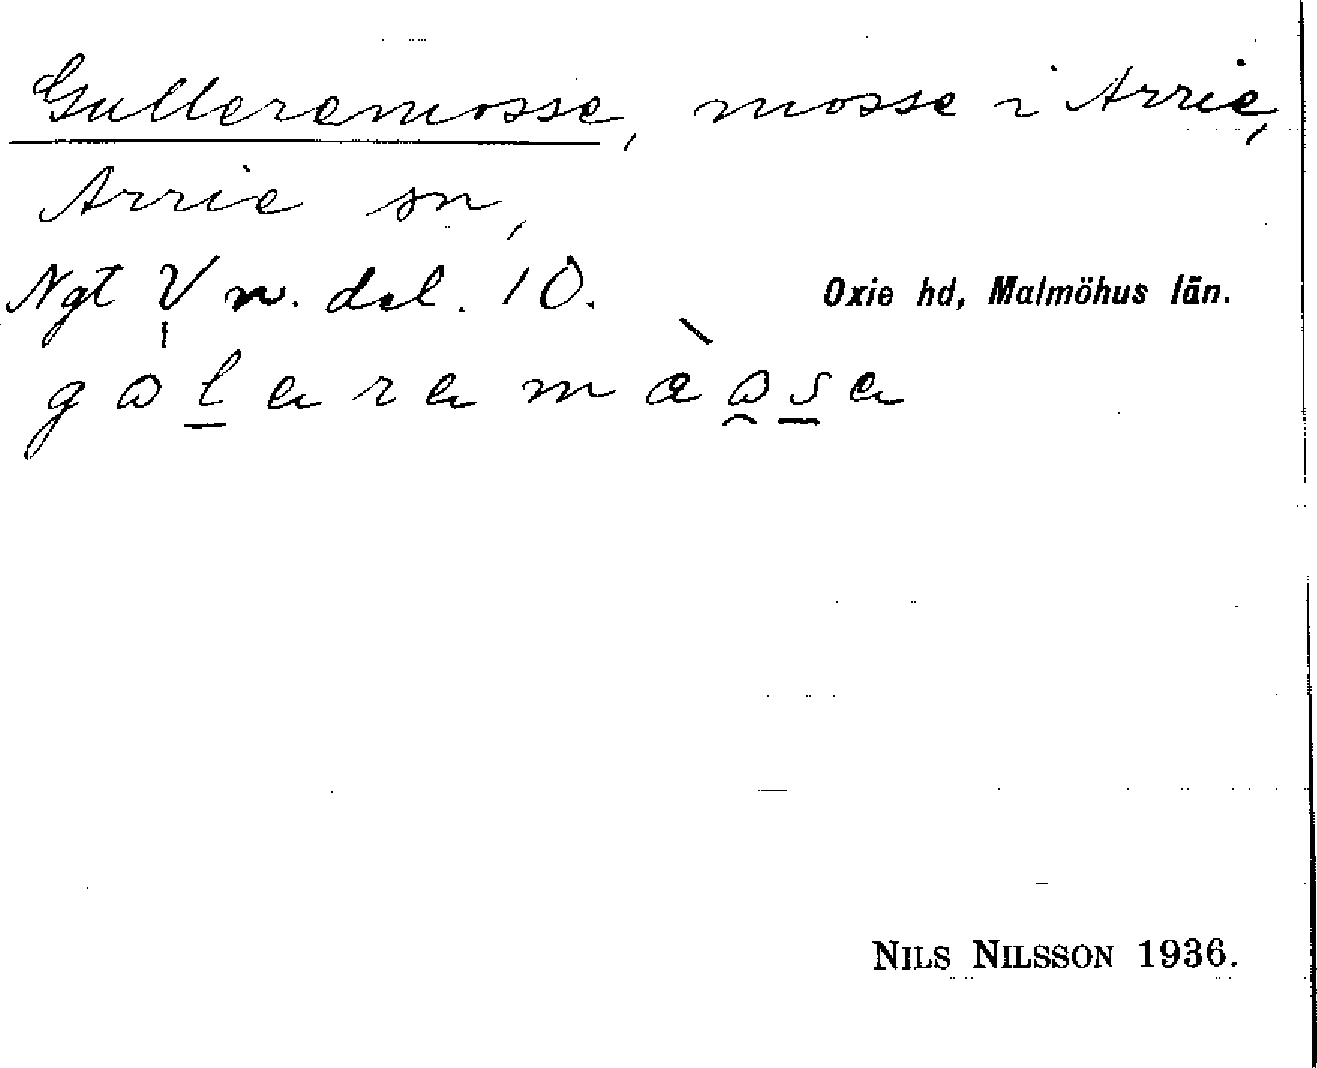 Gulleremosse, mosse i Arrie,
Arrie sn,
Ngt V n. del. 10. Oxie hd, Malmöhus län.
NILS NILSSON 1936.